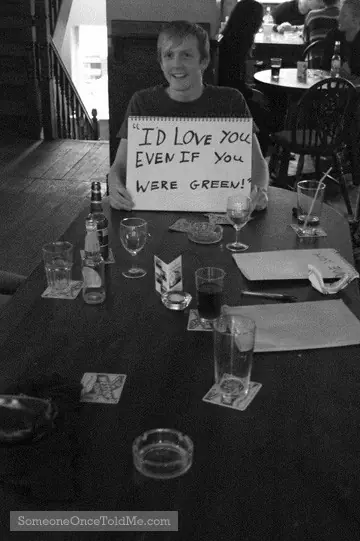 "I'D LOVE YOU
EVEN IF YOU
WERE GREEN!"
SomeoneOnceToldMe.com